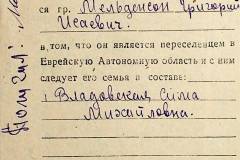 ся гр. Мельденсон Григорий
Исаевич.
в том, что он является переселенцем в
Еврейскую Автономную область и с ним
следует его семья в составе:
Владовская Сима
Михайловна.
Получил: